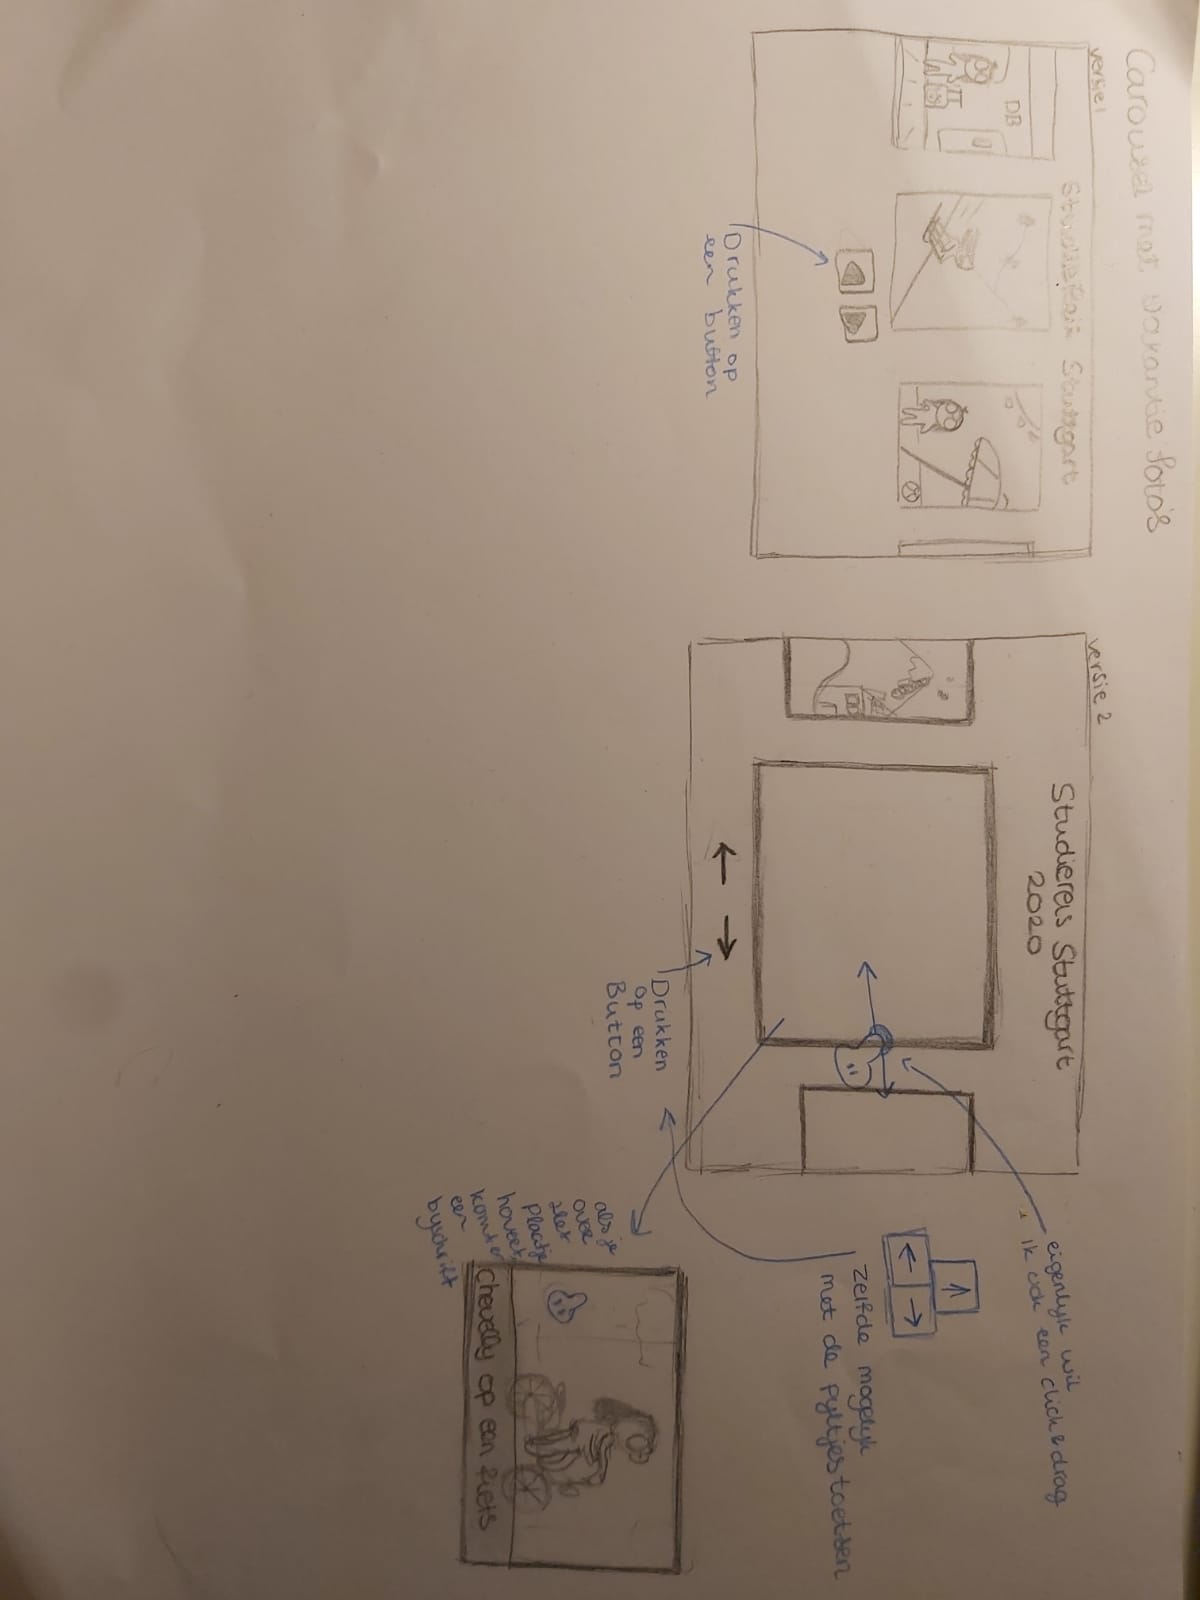 Carousel met vakantie foto's
versie 1
Studiereis Stuttgart
DB
Drukken op
een button
versie 2
Studiereis Stuttgart
2020
Drukken
op een
Button
eigenlijk wil
ik ook een click & drag
Zelfde mogelijk
met de pijltjestoetsen
als je
over
plaatje
hovert,
komt er
een
bijschrift
op een fiets